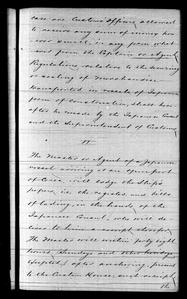 case are Customs Officers allowed
to receive any sum of money how
ever small, in any form what
ever from the Captain or Agent
Regulations, relative to the
or sealing of Merchandise
transported in vessels of Japanese
form of construction, shall here
after be made by the Japanese Govt
and the Superintendent of Customs
The Master or Agent of a Japanese
vessel coming at an open port
of Corea, shall lodge the Ship's
papers, i.e. the register, and bills
of lading, in the hands of the
Japanese Consul, who will de
liver to him a receipt therefor
The Master will within forty eight
hours, (Sundays and other holidays
excepted) after anchoring, present
to the Custom House, such receipt